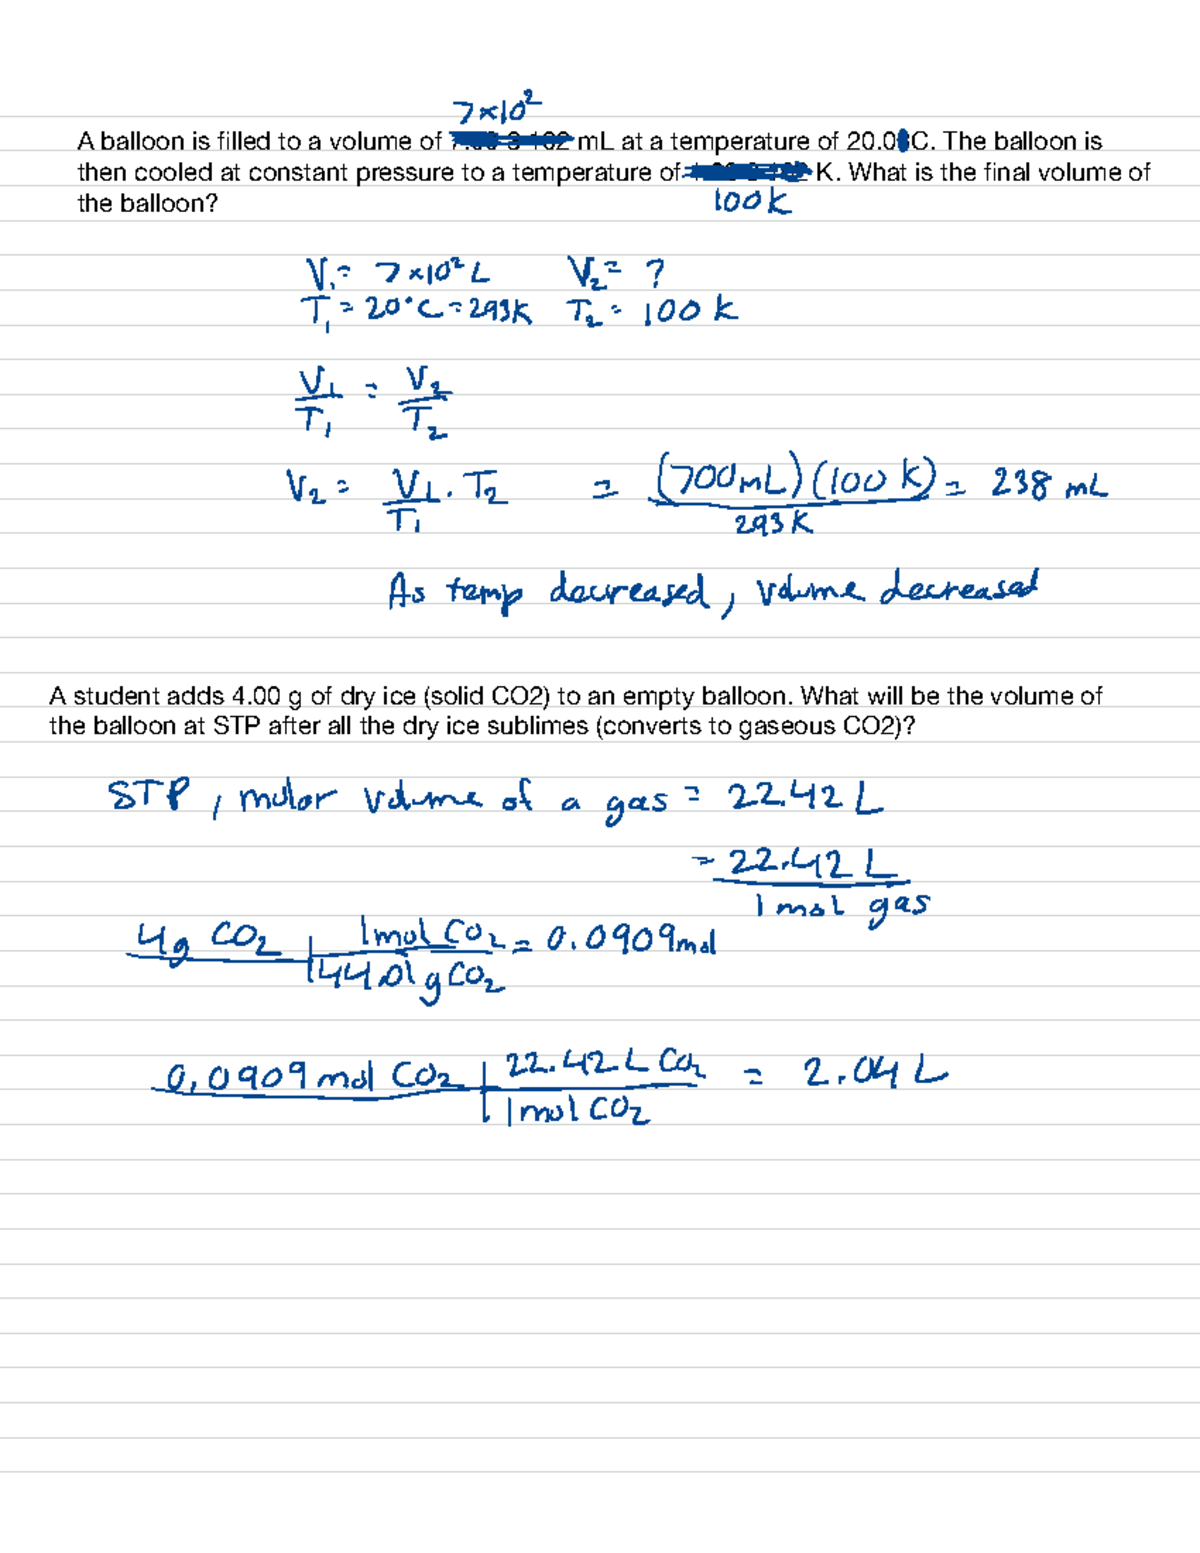 7×10²
A balloon is filled to a volume of mL at a temperature of 20.0 C. The balloon is
then cooled at constant pressure to a temperature of K. What is the final volume of
the balloon?
100K
V₁= 7×10² L V₂= ?
T₁ = 20°C = 293K T₂ = 100 K
V₁/T₁ = V₂/T₂
V₂ = V₁·T₂/T₁ = (700mL)(100 K)/293K = 238 mL
As temp decreased, volume decreased
A student adds 4.00 g of dry ice (solid CO2) to an empty balloon. What will be the volume of
the balloon at STP after all the dry ice sublimes (converts to gaseous CO2)?
STP, molar volume of a gas = 22.42 L
= 22.42 L
1 mol gas
4g CO₂ | 1mol CO₂ = 0.0909mol
44.01g CO₂
0.0909 mol CO₂ | 22.42 L CO₂ = 2.04 L
1 mol CO₂